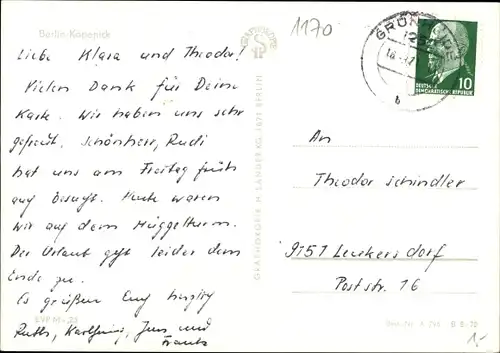 Berlin-Köpenick
1170
Liebe Klara und Theodor!
Vielen Dank für Deine
Karte. Wir haben uns sehr
gefreut. Schönherr, Rudi
hat uns am Freitag früh
auf besucht. Heute waren
wir auf dem Müggelturm.
Der Urlaub geht leider dem
Ende zu.
Es grüßen Euch herzlich
Ruth, Karlheinz, Jens und
EVP M -,25
GRAPHOKOPIE H. SANDER KG, 1071 BERLIN
DEUTSCHE
DEMOKRATISCHE REPUBLIK
10
An
Theodor Schindler
9151 Leukersdorf
Poststr. 16